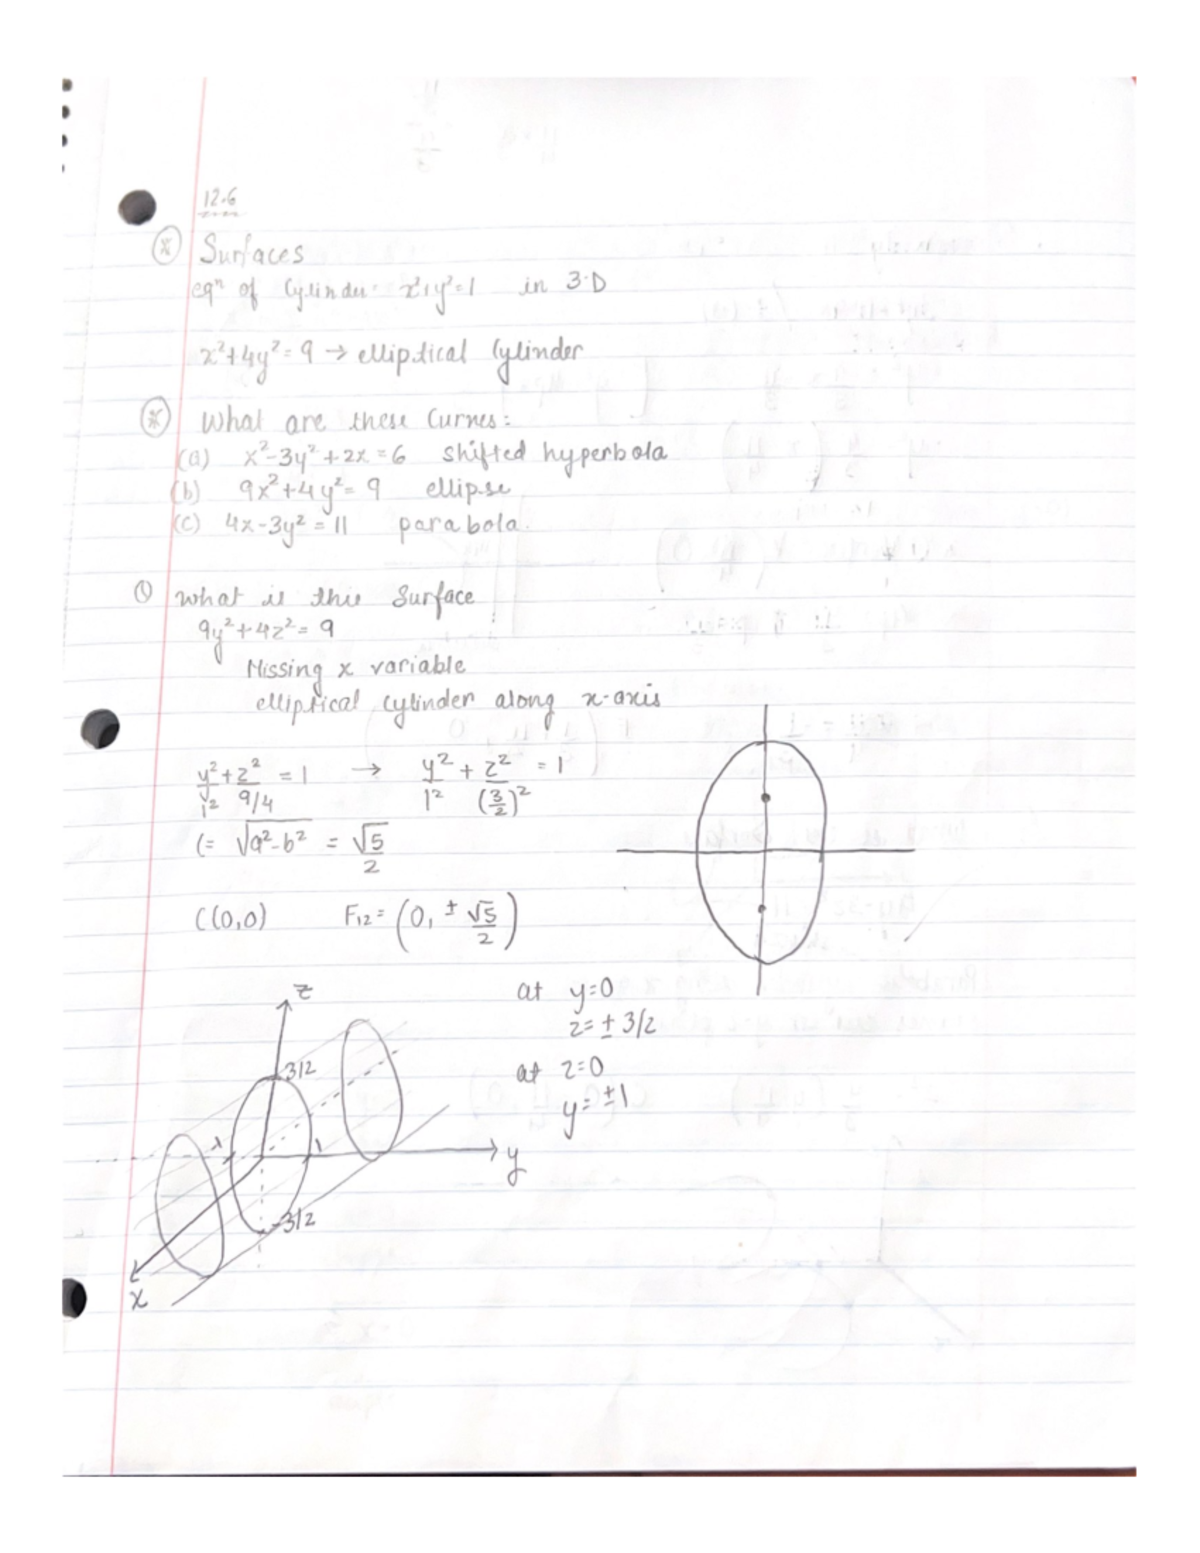 12.6
Surfaces
eqⁿ of Cylinder: x²+y²=1 in 3-D
x²+4y²=9 → elliptical Cylinder
What are these Curves:
(a) x²-3y²+2x=6 shifted hyperbola
(b) 9x²+4y²=9 ellipse
(c) 4x-3y²=11 parabola.
① what is this Surface
9y²+4z²=9
Missing x variable
elliptical cylinder along x-axis
y²/1² + z²/9/4 = 1 → y²/1² + z²/(3/2)² = 1
C= √a²-b² = √5/2
C(0,0) F₁₂= (0, ± √5/2)
at y=0
z=± 3/2
at z=0
y=±1
z
3/2
1
y
-3/2
x